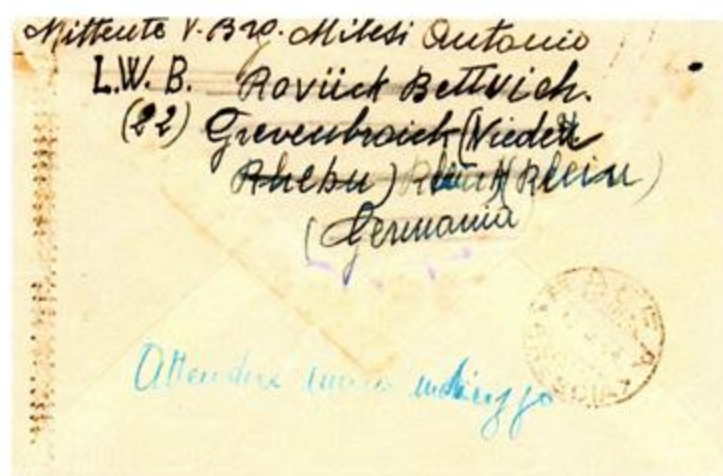 Mittente V. Brg. Milesi Antonio
L.W.B. Rovück Bettvich.
(22) Grevenbroich (Nieder
Rhein)
(Germania)
Attendere nuovo indirizzo